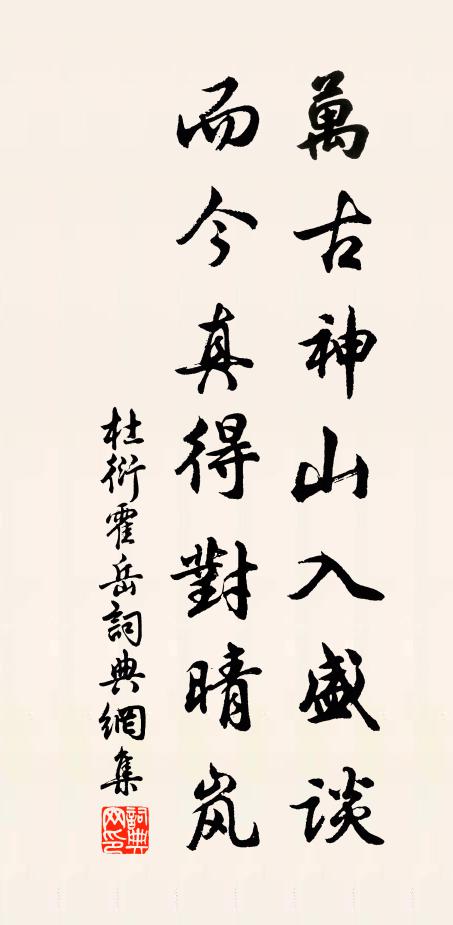 萬古神山入盛談
而今真得對晴岚
杜衍霍岳詞典網集
詞典
网印